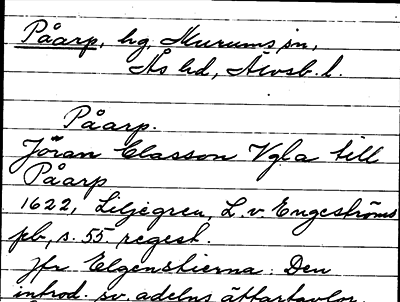 Påarp, hg, Murums sn,
Ås hd, Älvsb. l.
Påarp.
Jöran Classon Ugla till
Påarp
1622, Liljegren, L. v. Engeströms
pb, s. 55 regest.
Jfr Elgenstierna: Den
introd. sv. adelns ättartavlor